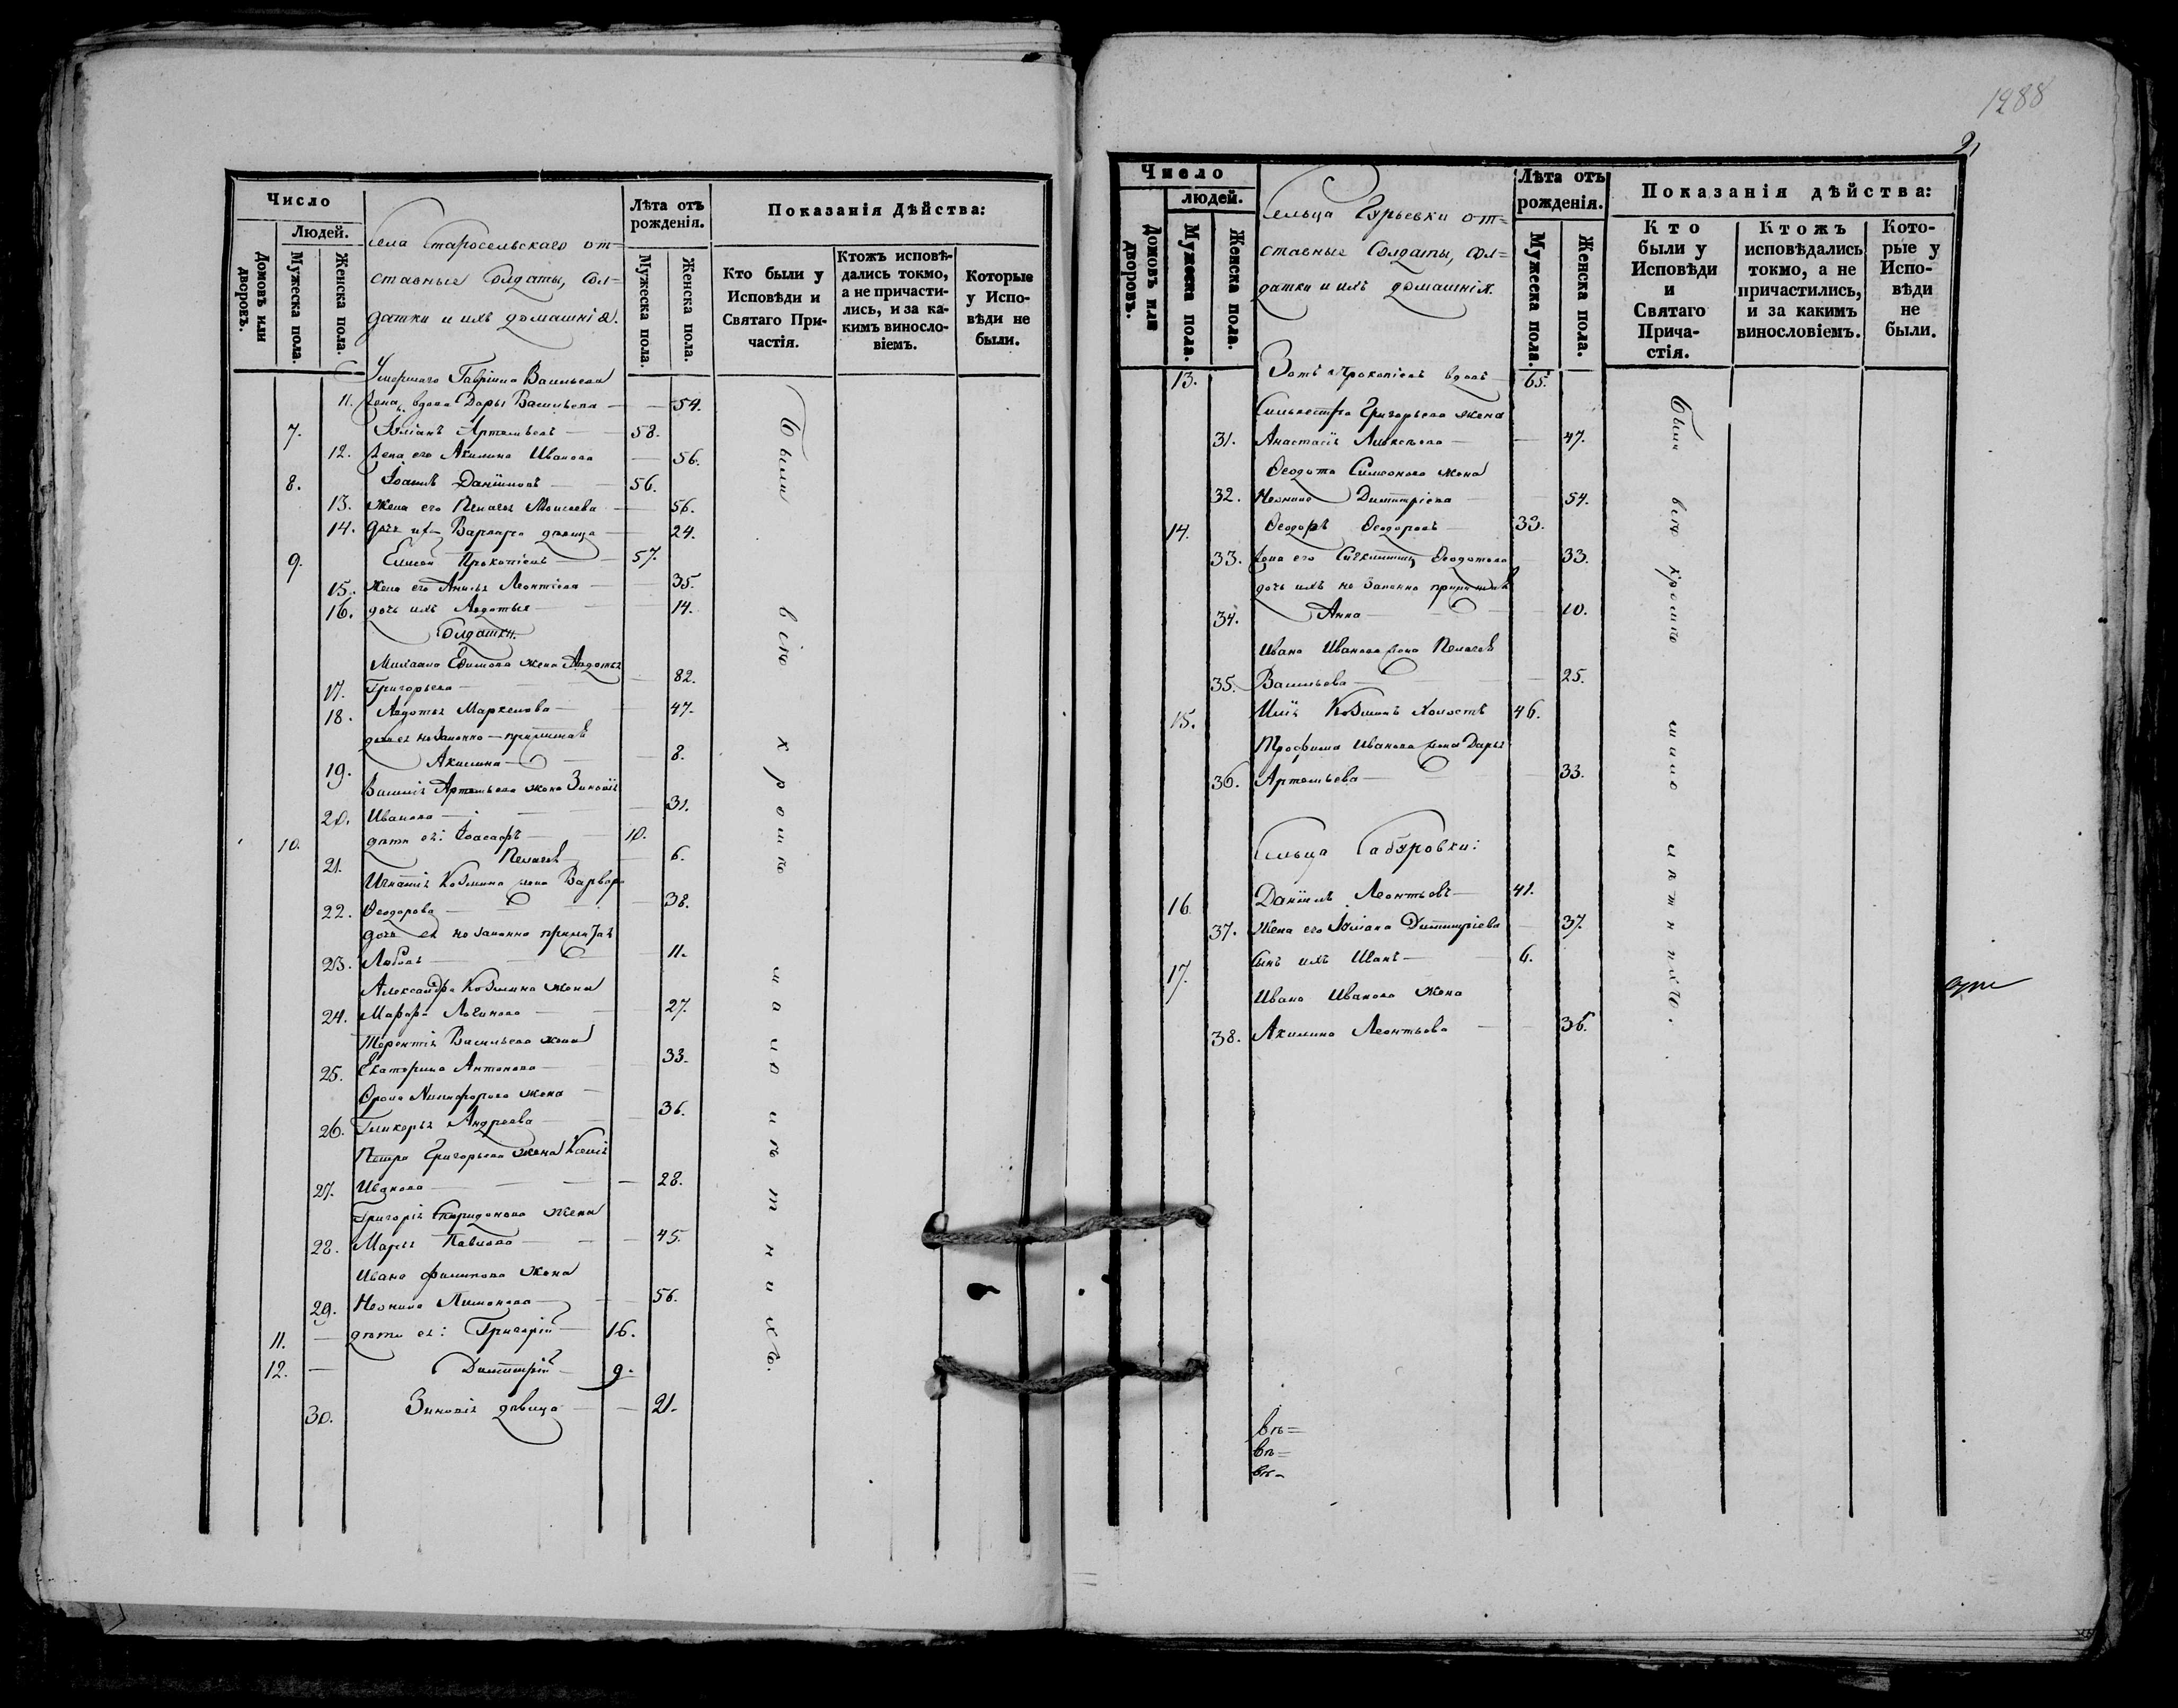 Число
Людей.
Домовъ или дворовъ.
Мужеска пола.
Женска пола.
Села Старосельскаго от=
ставные Солдаты, сол=
датки и ихъ домашнія.
Лѣта отъ рожденія.
Мужеска пола.
Женска пола.
Показанія Дѣйства:
Кто были у Исповѣди и Святаго Причастія.
Ктожъ исповѣдались токмо, а не причастились, и за какимъ винословіемъ.
Которые у Исповѣди не были.
Умершаго Гавріила Васильева
11. жена вдова Дарья Васильева 54.
7. Іуліанъ Артемьевъ 58.
12. Жена его Акилина Иванова 56.
8. Іоаннъ Даніиловъ 56.
13. Жена его Пелагея Моисеева 56.
14. Дочь их Варвара дѣвица 24.
9. Елисей Прокопіевъ 57.
15. Жена его Анисья Леонтіева 35.
16. дочь ихъ Авдотья 14.
Солдатки.
Михаила Ефимова жена Авдотья
17. Григорьева 82.
18. Авдотья Маркелова 47.
дочь ея незаконно-прижитая
19. Акилина 8.
Василія Артемьева жена Зиновія
20. Иванова 31.
10. дѣти ея: Іоасафъ 10.
21. Пелагея 6.
Игнатія Козмина жена Варвара
22. Ѳеодорова 38.
дочь ея незаконно прижитая
23. Любовь 11.
Александра Козмина жена
24. Марфа Логинова 27.
Терентія Васильева жена
25. Екатерина Антонова 33.
Фрола Никифорова жена
26. Гликерья Андреева 36.
Петра Григорьева жена Ксенія
27. Иванова 28.
Григорія Спиридонова жена
28. Марья Павлова 45.
Ивана Филипова жена
29. Неонила Пименова 56.
11. дѣти ея: Григорій 16.
12. Димитрій 9.
30. Зиновія дѣвица 21.
Были всѣ кромѣ малолѣтнихъ.
1288
21
Число
людей.
Домовъ или дворовъ.
Мужеска пола.
Женска пола.
Сельца Гурьевки от=
ставные Солдаты, сол=
датки и ихъ домашнія.
Лѣта отъ рожденія.
Мужеска пола.
Женска пола.
Показанія дѣйства:
Кто были у Исповѣди и Святаго Причастія.
Ктожъ исповѣдались токмо, а не причастились, и за какимъ винословіемъ.
Которые у Исповѣди не были.
13. Зотъ Прокопіевъ вдовъ 65.
Сильвестра Григорьева жена
31. Анастасія Алексѣева 47.
Ѳеодота Симонова жена
32. Неонила Димитріева 54.
14. Ѳеодоръ Ѳеодоровъ 33.
33. Жена его Ѳеодотова 33.
дочь ихъ не законно прижитая
34. Анна 10.
Ивана Иванова жена Пелагея
35. Васильева 25.
15. Илія Козминъ холостъ 46.
Трофима Иванова жена Дарья
36. Артемьева 33.
Сельца Сабуровки:
16. Даніилъ Леонтьевъ 41.
37. Жена его Іуліана Димитріева 37.
17. Сынъ ихъ Иванъ 6.
Ивана Иванова жена
38. Акилина Леонтьева 36.
Были всѣ кромѣ малолѣтнихъ.